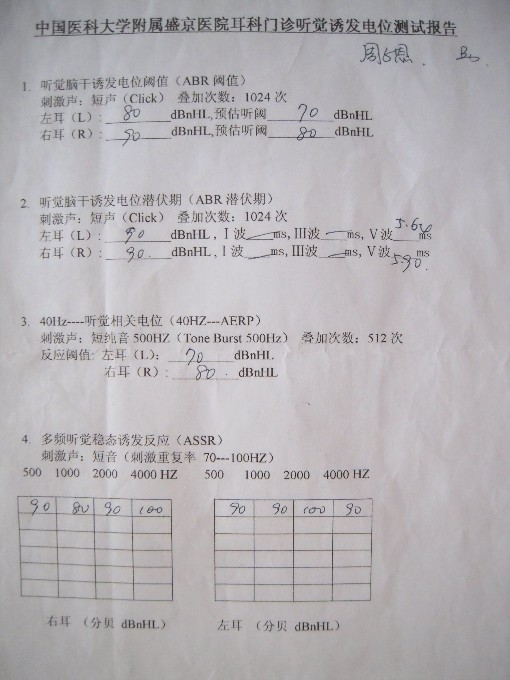 中国医科大学附属盛京医院耳科门诊听觉诱发电位测试报告
1. 听觉脑干诱发电位阈值（ABR 阈值）
刺激声：短声（Click） 叠加次数：1024 次
左耳（L）: 80 dBnHL,预估听阈 70 dBnHL
右耳（R）: 90 dBnHL,预估听阈 80 dBnHL
2. 听觉脑干诱发电位潜伏期（ABR 潜伏期）
刺激声：短声（Click） 叠加次数：1024 次
左耳（L）: 90 dBnHL，Ⅰ波 — ms,Ⅲ波 — ms, Ⅴ波 ms
右耳（R）: 90. dBnHL，Ⅰ波 — ms,Ⅲ波 — ms, Ⅴ波 5.90. ms
3. 40Hz----听觉相关电位（40HZ---AERP）
刺激声：短纯音 500HZ（Tone Burst 500Hz） 叠加次数：512 次
反应阈值: 左耳（L）: 70 dBnHL
右耳（R）: 80. dBnHL
4. 多频听觉稳态诱发反应（ASSR）
刺激声：短音（刺激重复率 70---100HZ）
500 1000 2000 4000 HZ 500 1000 2000 4000 HZ
90 80 90 100 90 90 100 90
右耳 （分贝 dBnHL） 左耳 （分贝 dBnHL）